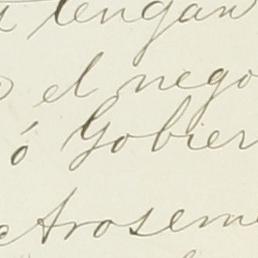 tengan
el nego
ó Gobier
Aroseme